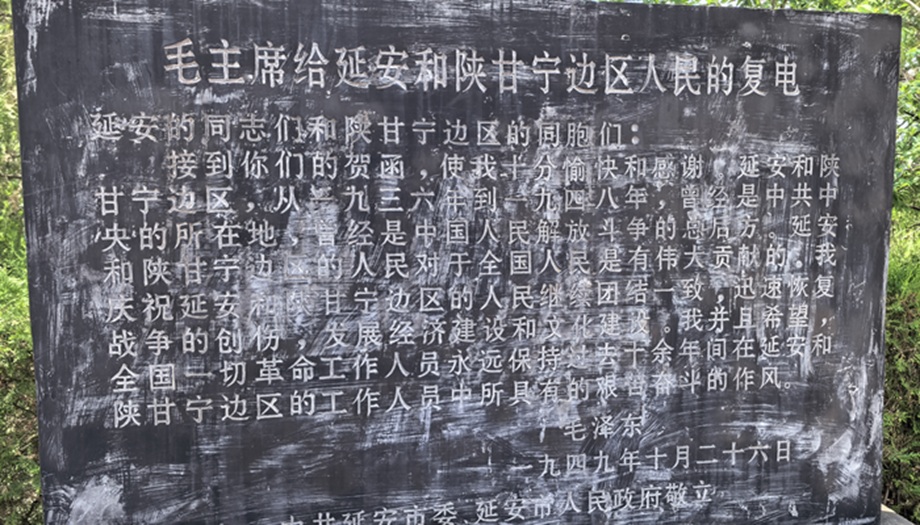 毛主席给延安和陕甘宁边区人民的复电
延安的同志们和陕甘宁边区的同胞们：
接到你们的贺函，使我十分愉快和感谢。延安和陕
甘宁边区，从一九三六年到一九四八年，曾经是中共中
央的所在地，曾经是中国人民解放斗争的总后方。延安
和陕甘宁边区的人民对于全国人民是有伟大贡献的。我
庆祝延安和陕甘宁边区的人民继续团结一致，迅速恢复
战争的创伤，发展经济建设和文化建设。我并且希望，
全国一切革命工作人员永远保持过去十余年间在延安和
陕甘宁边区的工作人员中所具有的艰苦奋斗的作风。
毛泽东
一九四九年十月二十六日
中共延安市委、延安市人民政府敬立